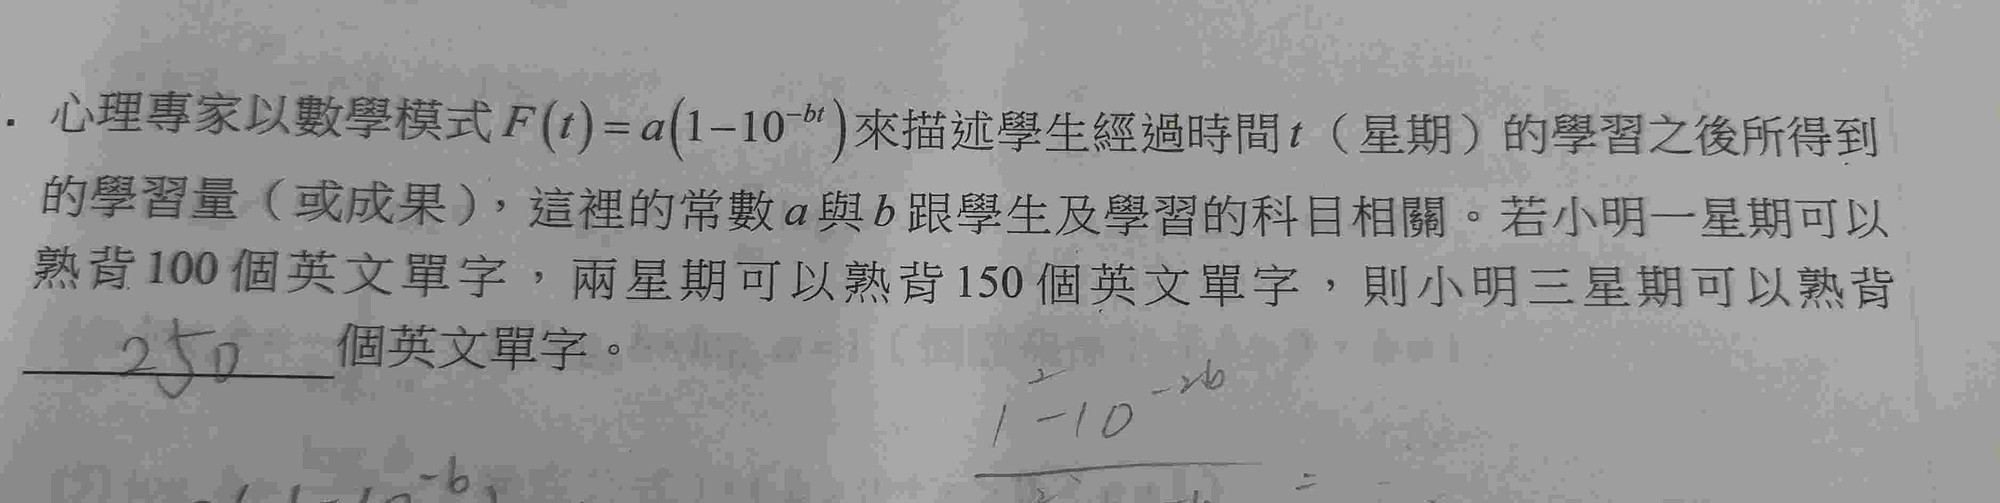 . 心理專家以數學模式 F(t)=a(1−10^{-bt}) 來描述學生經過時間 t（星期）的學習之後所得到
的學習量（或成果），這裡的常數 a 與 b 跟學生及學習的科目相關。若小明一星期可以
熟背 100 個英文單字，兩星期可以熟背 150 個英文單字，則小明三星期可以熟背
250 個英文單字。
1²−10^{-2b}
=